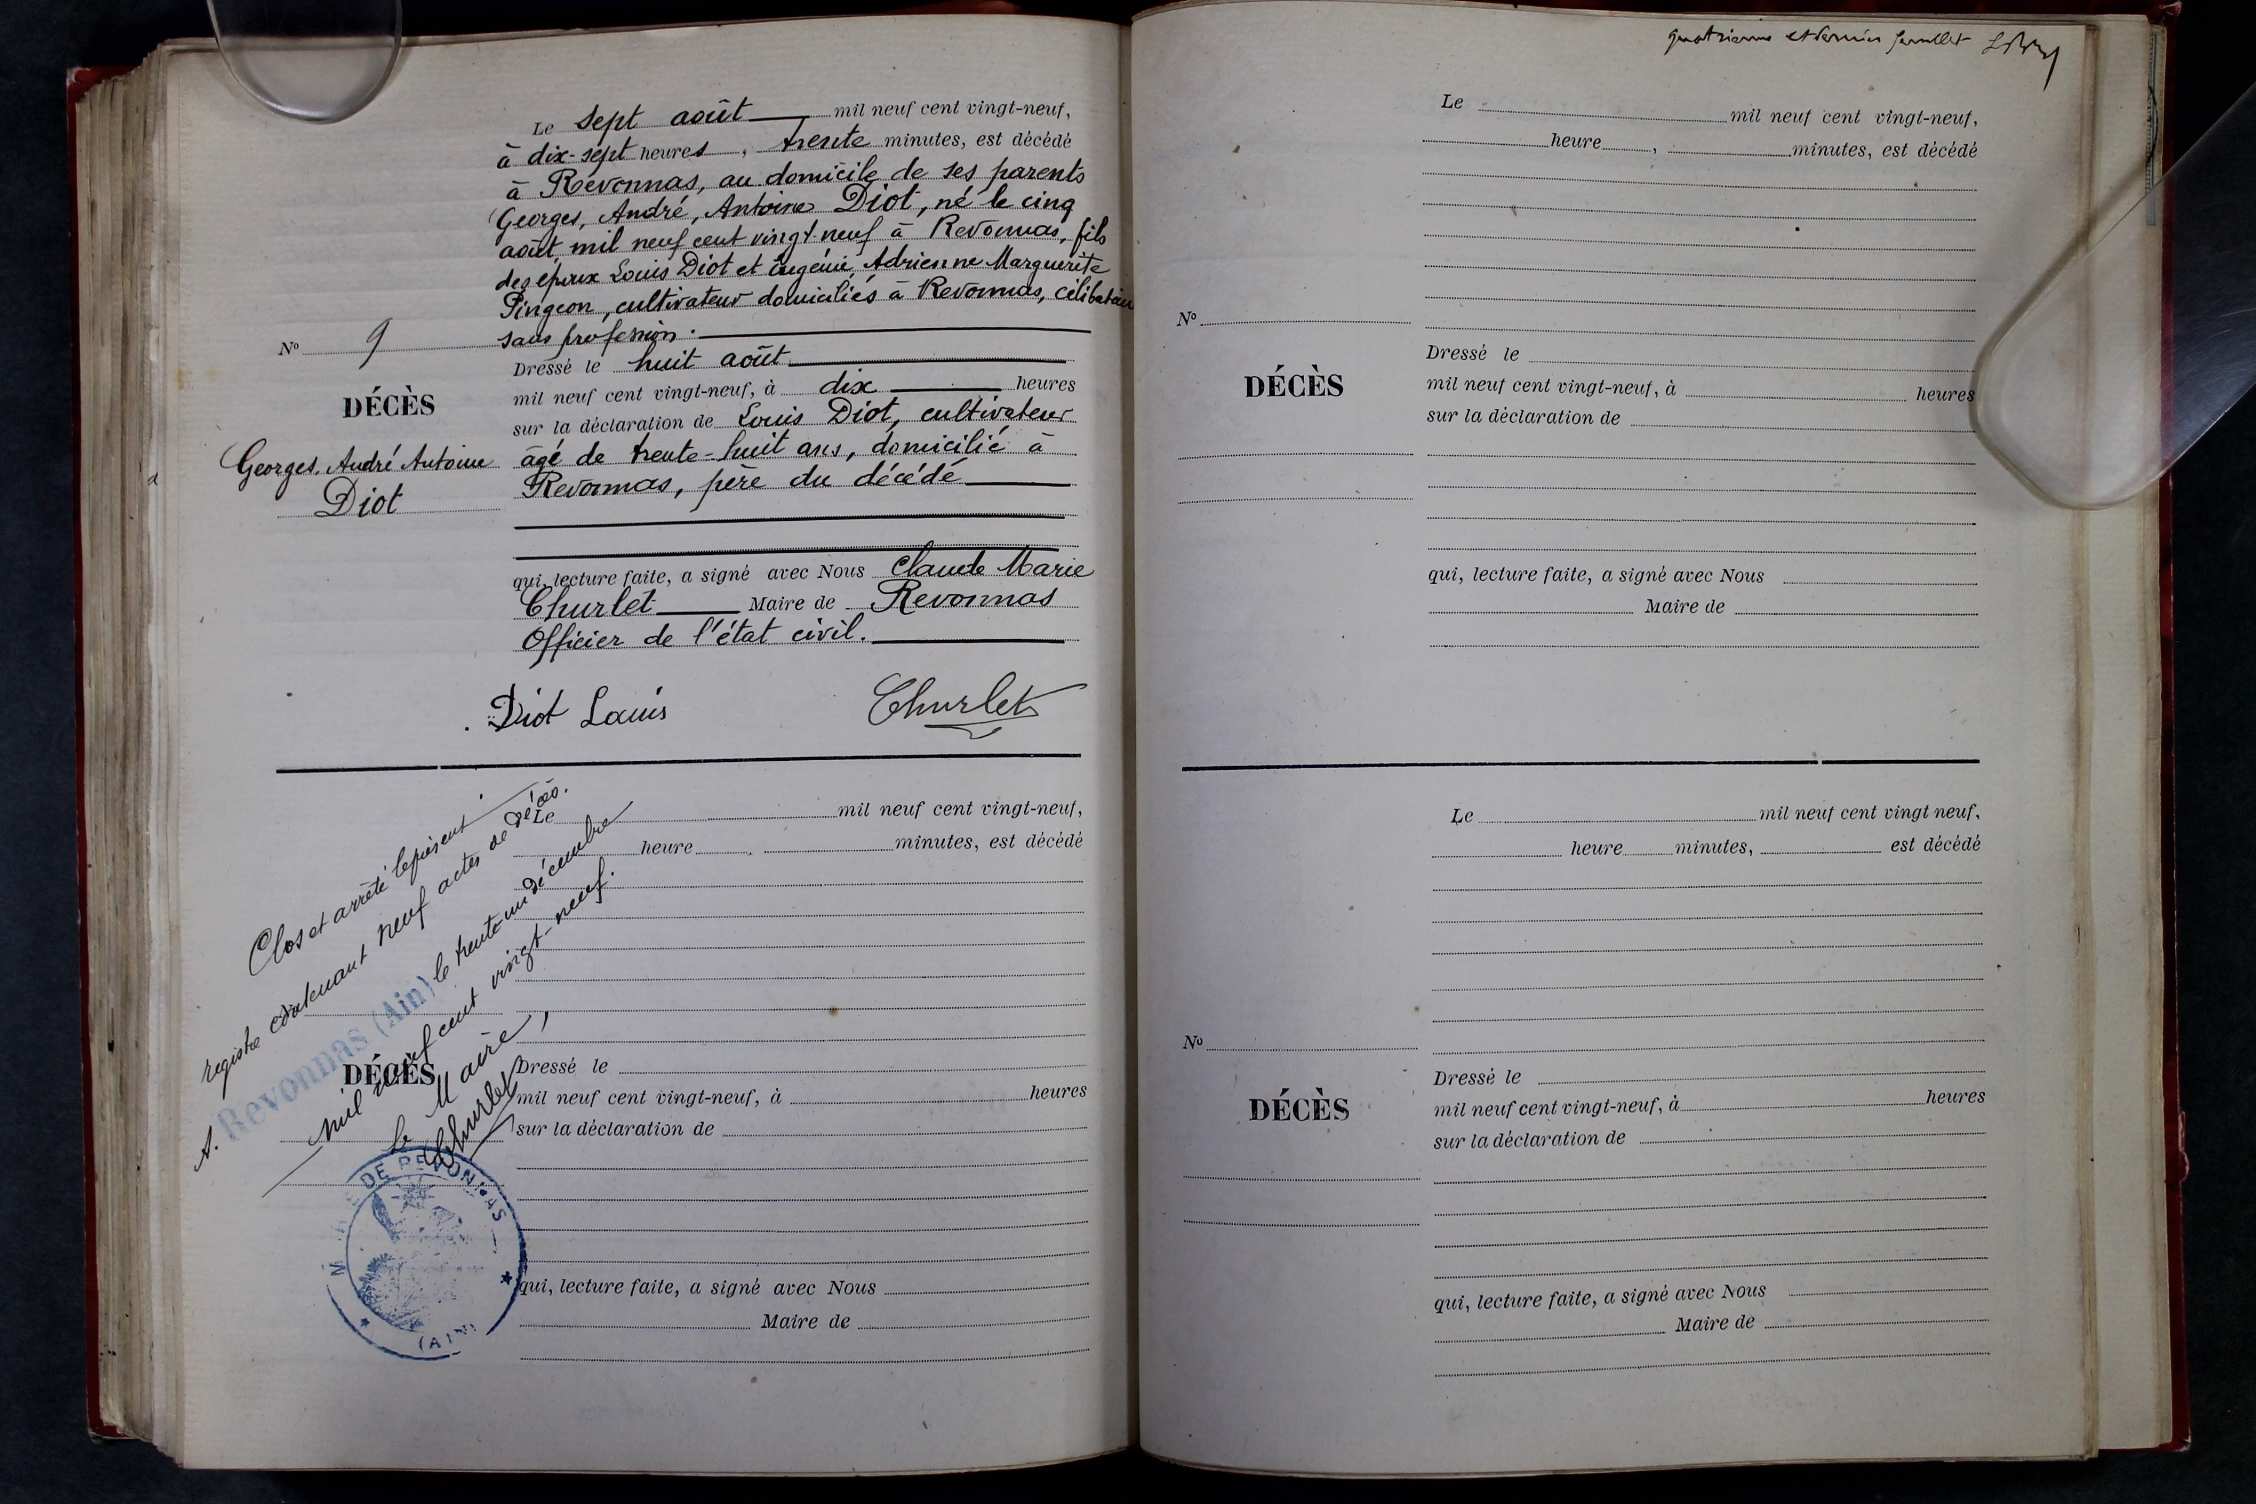 Le sept août mil neuf cent vingt-neuf,
à dix-sept heures, trente minutes, est décédé
à Revonnas, au domicile de ses parents
Georges, André, Antoine Diot, né le cinq
août mil neuf cent vingt-neuf à Revonnas, fils
des époux Louis Diot et Eugénie, Adrienne Marguerite
Pingeon, cultivateur domiciliés à Revonnas, célibataire
sans profession.
No 9
DÉCÈS
Georges, André Antoine
Diot
Dressé le huit août
mil neuf cent vingt-neuf, à dix heures
sur la déclaration de Louis Diot, cultivateur
âgé de trente-huit ans, domicilié à
Revonnas, père du décédé
qui, lecture faite, a signé avec Nous Claude Marie
Churlet Maire de Revonnas
Officier de l'état civil.
Diot Louis Churlet
Clos et arrêté le présent
registre contenant neuf actes de décès.
A. Revonnas (Ain) le trente-un décembre
mil neuf cent vingt-neuf.
le Maire,
Churlet
MAIRIE DE REVONNAS
(AIN)
Le mil neuf cent vingt-neuf,
heure , minutes, est décédé
DÉCÈS
Dressé le
mil neuf cent vingt-neuf, à heures
sur la déclaration de
qui, lecture faite, a signé avec Nous
Maire de
quatrième et dernier feuillet
Le mil neuf cent vingt-neuf,
heure , minutes, est décédé
No
DÉCÈS
Dressé le
mil neuf cent vingt-neuf, à heures
sur la déclaration de
qui, lecture faite, a signé avec Nous
Maire de
Le mil neuf cent vingt neuf,
heure minutes, est décédé
No
DÉCÈS
Dressé le
mil neuf cent vingt-neuf, à heures
sur la déclaration de
qui, lecture faite, a signé avec Nous
Maire de